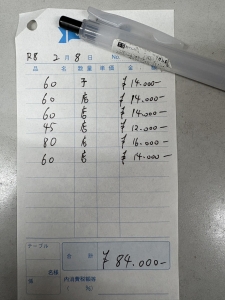 R8 2月8日 No.
品 名 数量 単価 金 額
60 ¥14.000-
60 店 ¥14.000-
60 店 ¥14.000-
45 店 ¥12.000-
80 店 ¥16.000-
60 店 ¥14.000-
テーブル 合 計 ¥84.000-
名様
様 内消費税額等
( %)